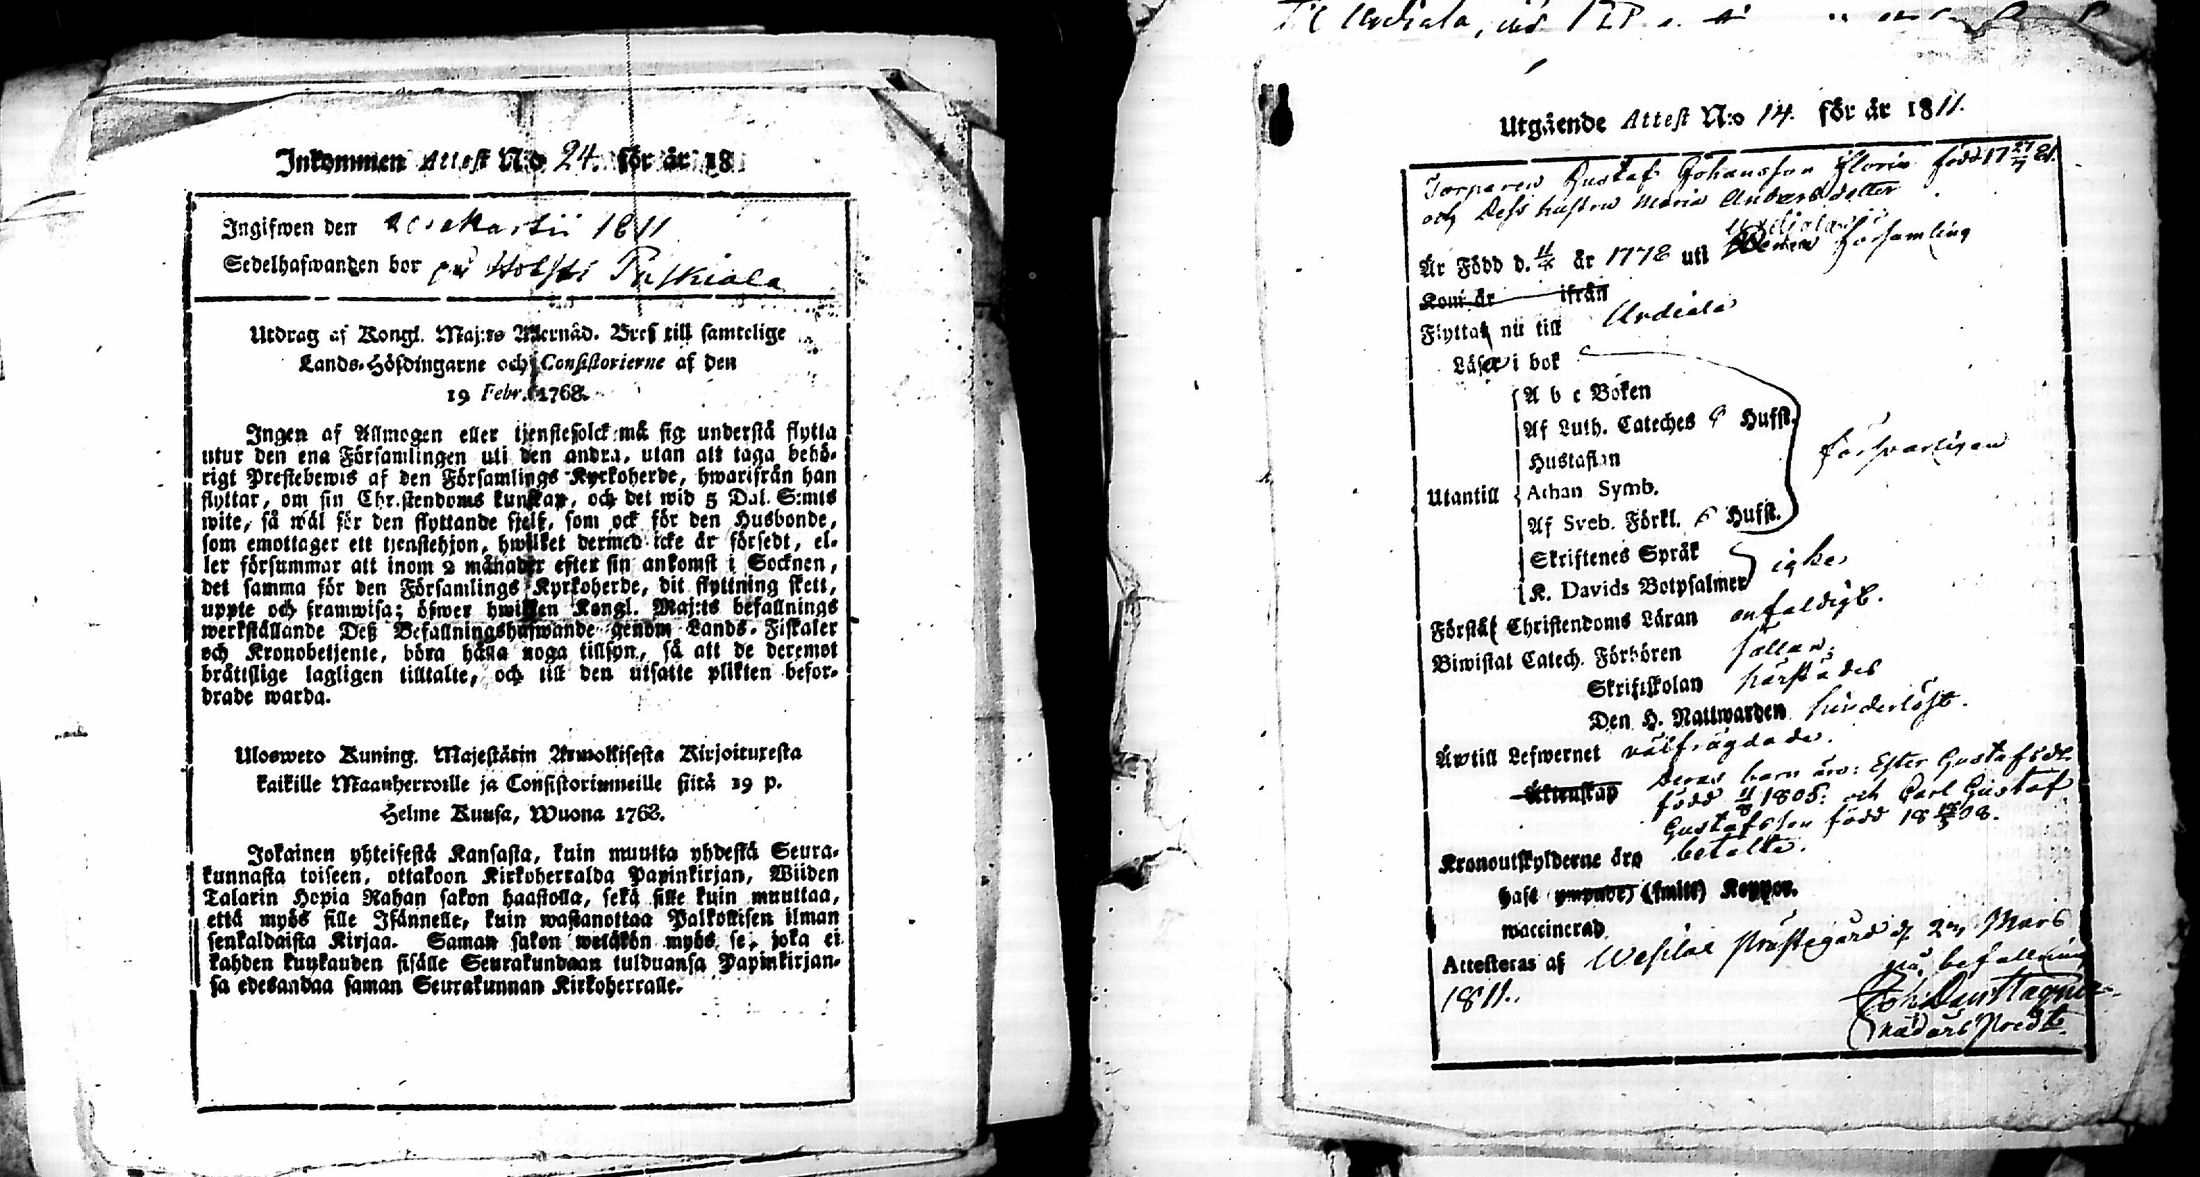 Inkommen Attest N:o 24. för år 18
Ingifwen den Martii 1811
Sedelhafwanden bor på Puskiala
Utdrag af Kongl. Maj:ts Allernåd. Bref till samtelige
Lands-Höfdingarne och Consistorierne af den
19 Febr. 1768.
Ingen af Allmogen eller tjenstefolck må sig understå flytta
utur den ena Församlingen uti den andra, utan att taga behö-
rigt Prestebewis af den Församlings Kyrkoherde, hwarifrån han
flyttar, om sin Christendoms kunskap, och det wid 5 Dal. S:mts
wite, så wäl för den flyttande sjelf, som ock för den Husbonde,
som emottager ett tjenstehjon, hwilket dermed icke är försedt, el-
ler försummar att inom 2 månader efter sin ankomst i Socknen,
det samma för den Församlings Kyrkoherde, dit flyttning skett,
uppte och framwisa; öfwer hwilken Kongl. Maj:ts befallnings
werkställande Deß Befallningshafwande genom Lands-Fiskaler
och Kronobetjente, böra hålla noga tillsyn, så att de deremot
bråttslige lagligen tilltalte, och till den utsatte plikten befor-
drade warda.
Uloswето Kuning. Majestätin Armollisesta Kirjoituxesta
kaikille Maanherroille ja Consistoriumeille siitä 19 p.
Helme Kuusa, Wuona 1768.
Jokainen yhteisestä Kansasta, kuin muutta yhdestä Seura-
kunnasta toiseen, ottakoon Kirkoherralda Papinkirjan, Wiiden
Talarin Hopia Rahan sakon haastolla, sekä sille kuin muuttaa,
että myös sille Isännelle, kuin wastanottaa Palkollisen ilman
senkaldaista Kirjaa. Saman sakon wetäkön myös se, joka ei
kahden kuukauden sisälle Seurakundaan tulduansa Papinkirjan-
sa edesandaa saman Seurakunnan Kirkoherralle.
Til Urdiala,
Utgående Attest N:o 14. för år 1811.
Torparen Gustaf Johansson Florin född 17 27/7 81.
och Dess hustru Maria Andersdotter
Är Född d. år 1778 uti församling
Kom är ifrån
Flyttat nu till Urdiala
Läser i bok
A b c Boken
Af Luth. Cateches 6 Hufst.
Hustaflan
Utantill Athan Symb.
Af Sveb. Förkl. 6 Hufst.
försvarligen
Skriftenes Språk
K. Davids Botpsalmer
icke
Förstå Christendoms Läran enfaldigt.
Biwistat Catech. Förhören sällan,
Skriftskolan härstädes
Den H. Nattwarden hinderlöst.
Äro till Lefwernet välfrägdade.
Äktenskap Deras barn äro: Ester Gustafsdr
född 1805: och Carl Gustaf
Gustafsson född 18 08.
Kronoutskylderne äro betalte.
haft ympade) (smitt) Koppor.
waccinerad
Attesteras af Wesilax Prästegård d. 27 Mars
1811. på befallning
Joh: Dan: Hagner
Nådårs Pred: